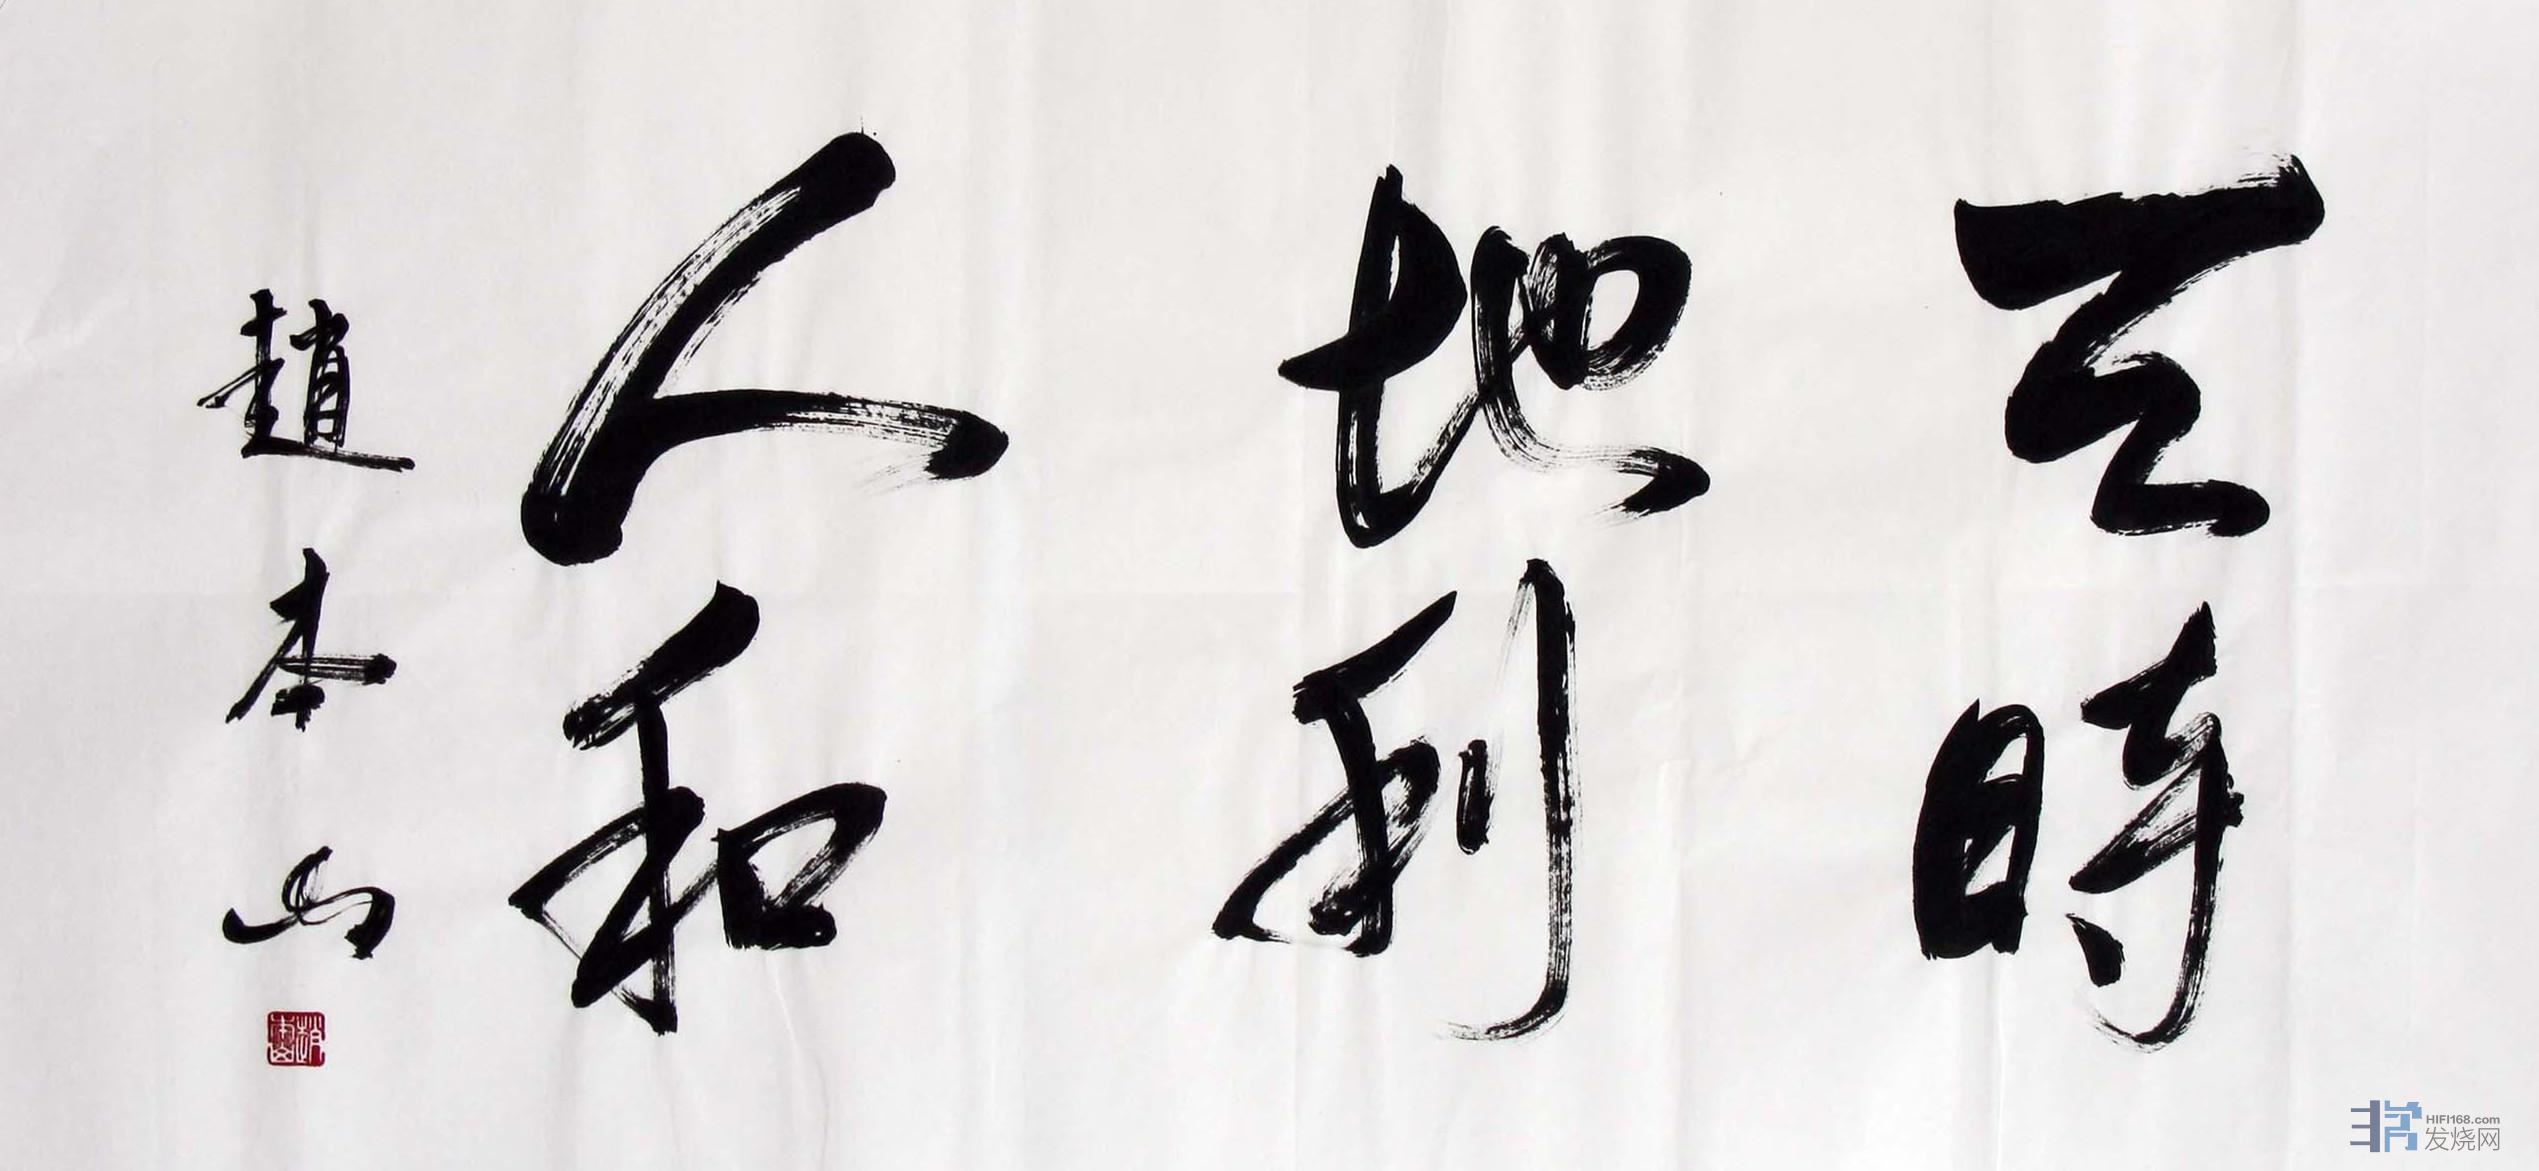 天時
地利
人和
趙本山
HIFI168.com
发烧网